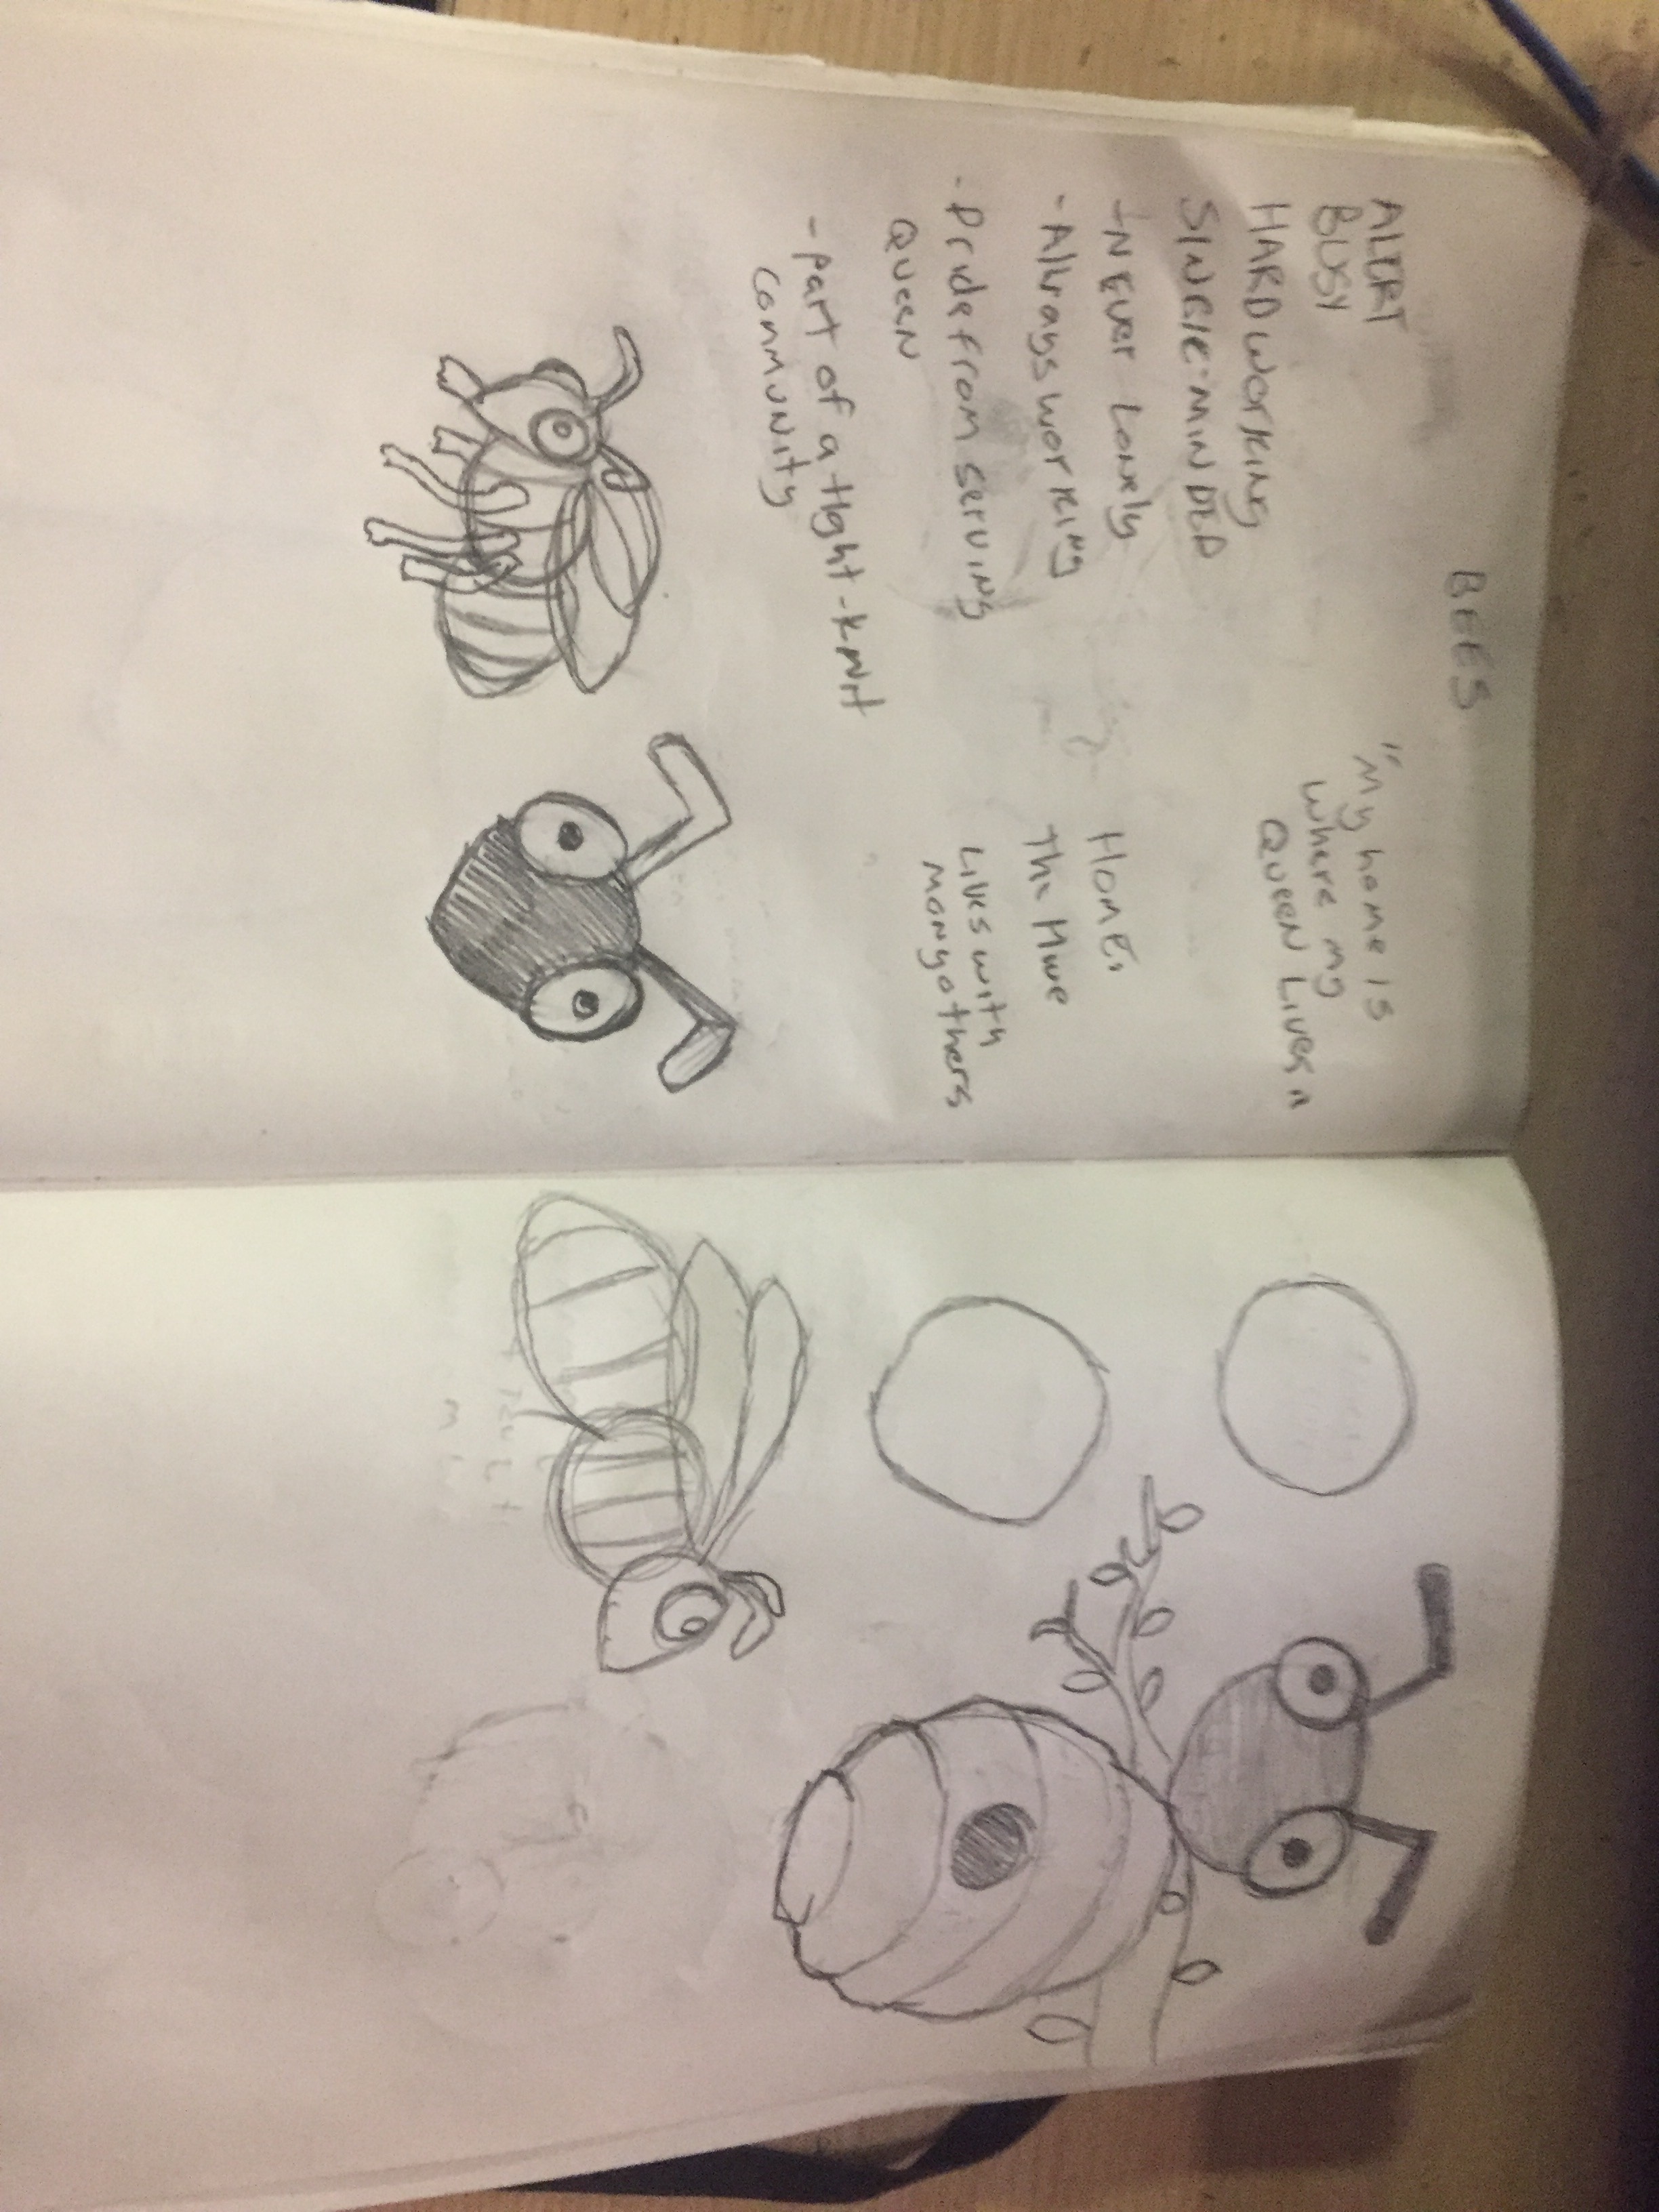 BEES
ALERT
BUSY
HARDWORKING
SINGLE-MINDED
- NEVER LONELY
- Always working
- Pride from serving
Queen
- part of a tight-knit
community
"My home is
where my
Queen Lives"
HOME:
The Hive
Lives with
many others